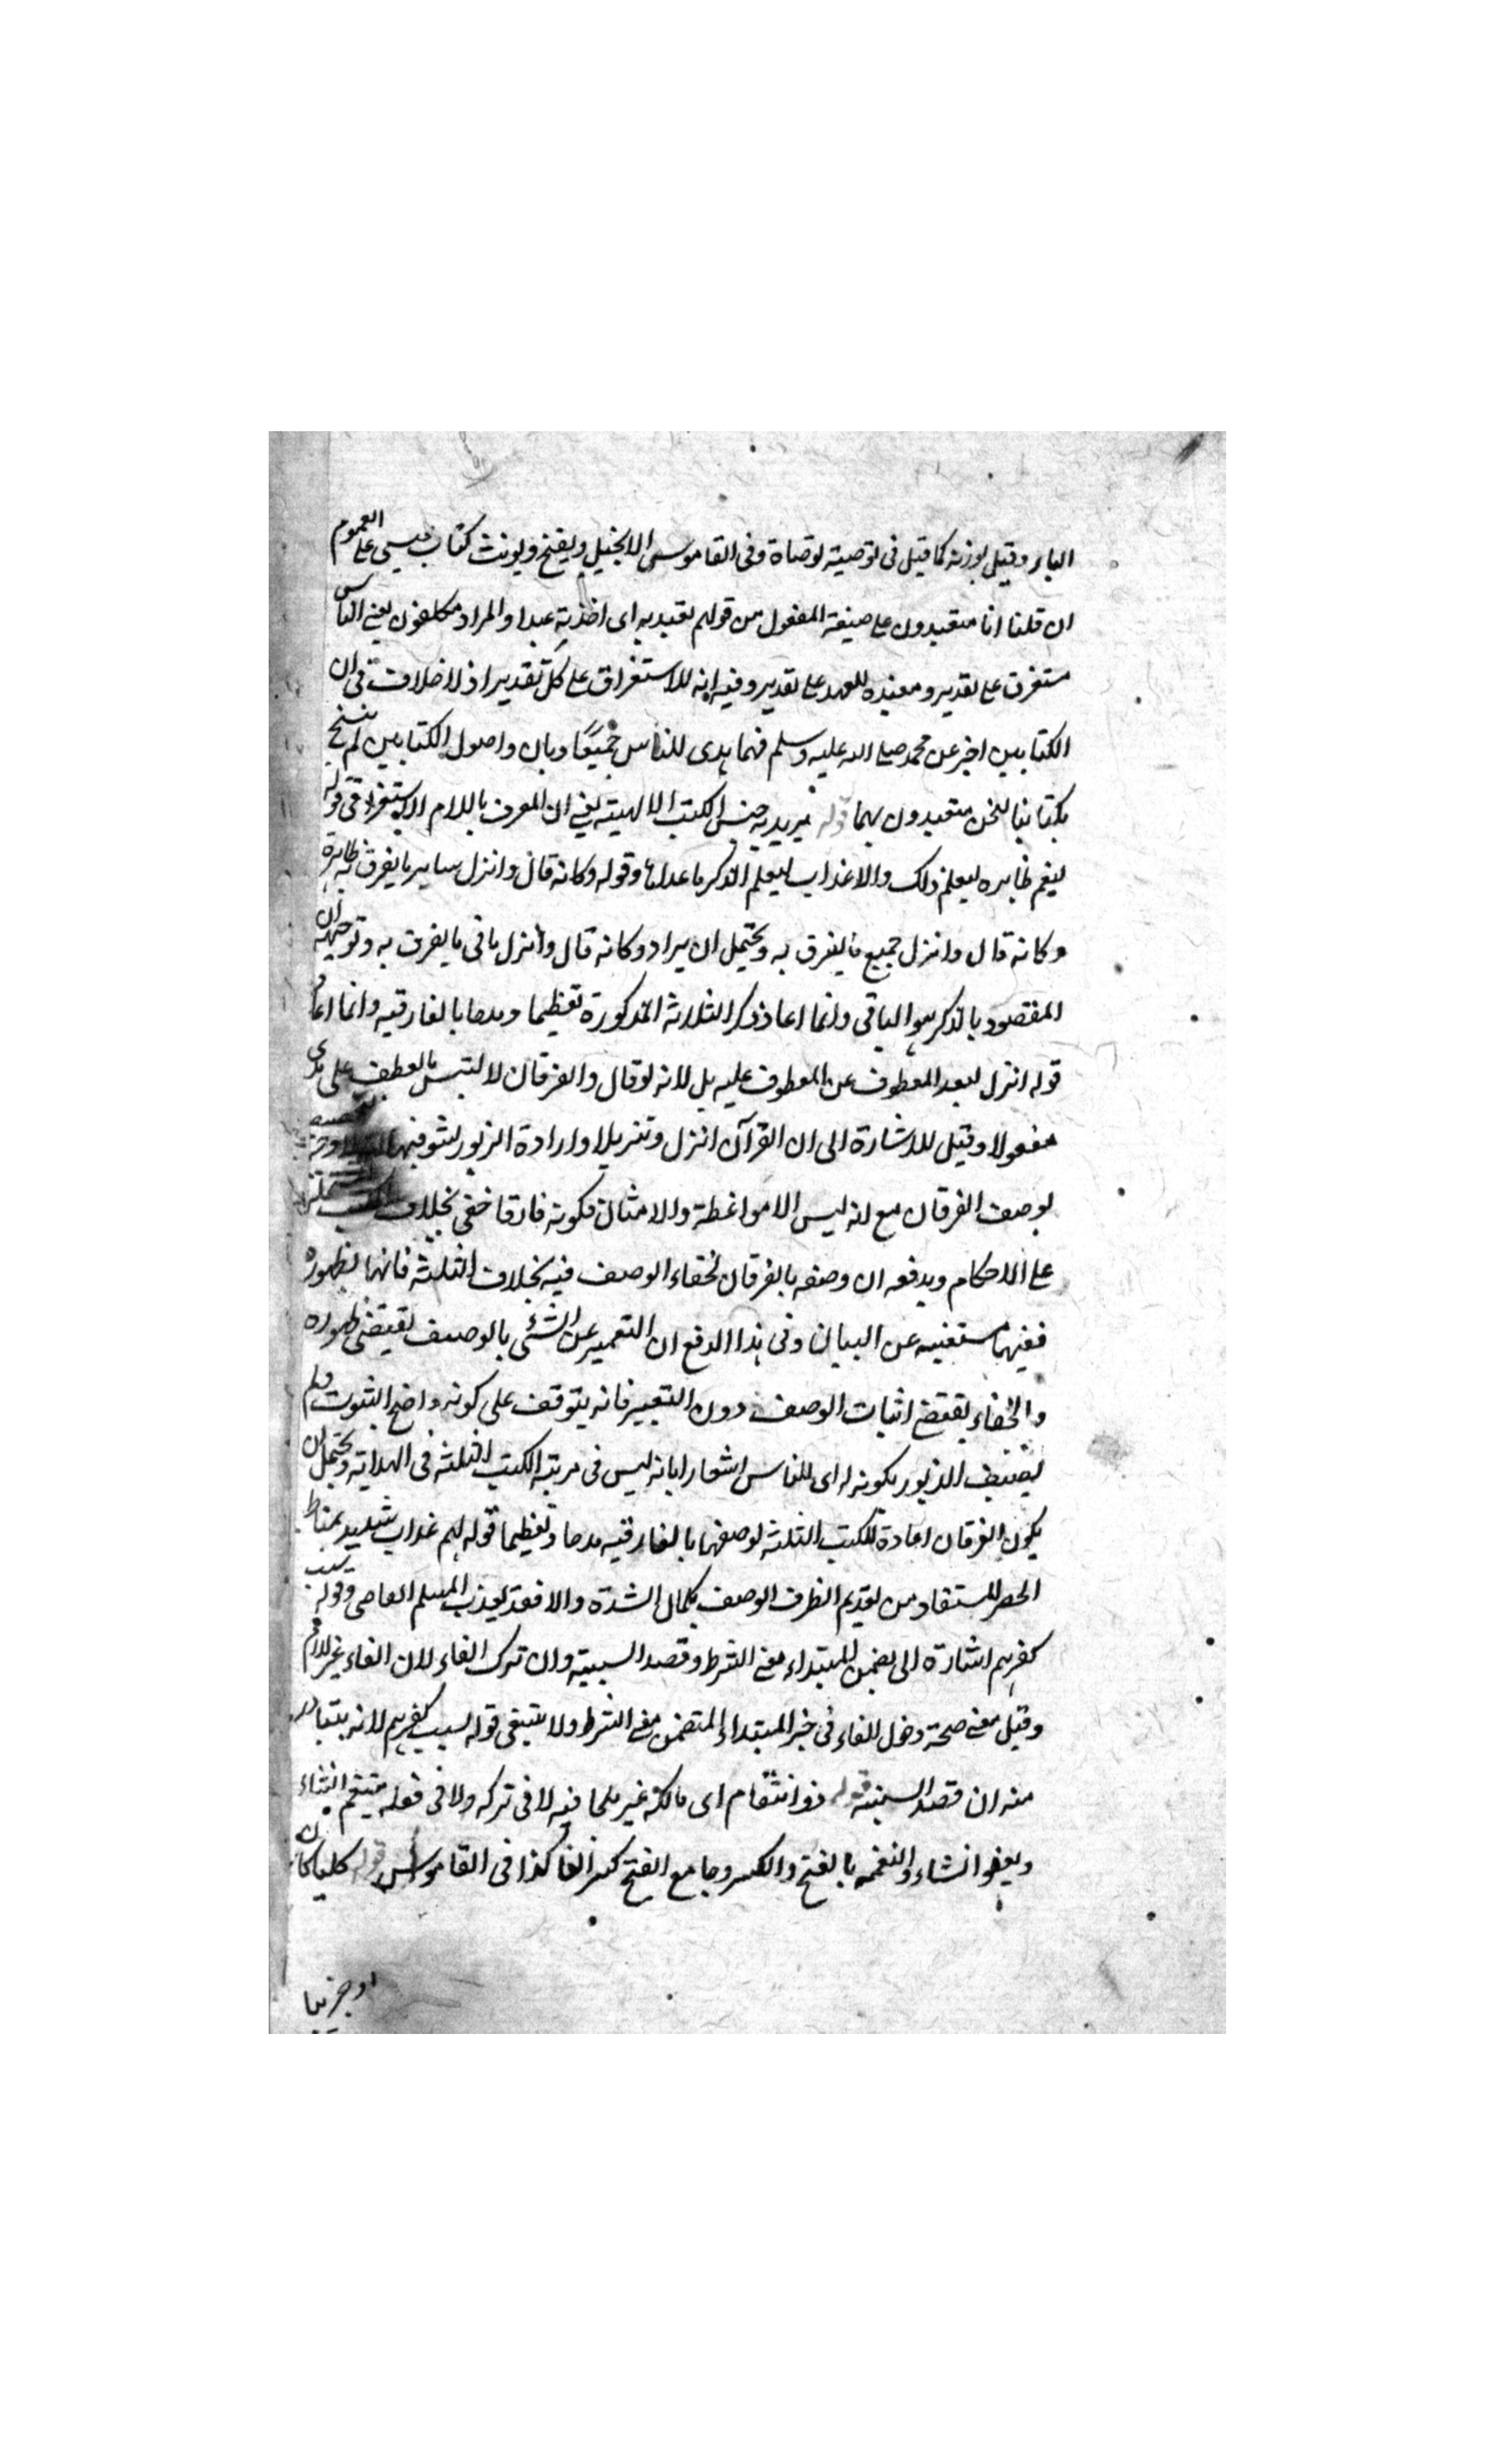 الباء وقيل بوزنه كما قيل فى توصية توصاة وفى القاموس الانجيل ويفتح ويونث كتاب عيسى على العموم
ان قلنا انا متعبدون على صيغة المفعول من قولهم تعبد به اى اخذ به عبدا والمراد مكلفون يعنى الناس
مستغرق على تقدير ومعنيده للعهد على تقدير وفيه انه للاستغراق على كل تقدير اذ لا خلاف فى ان
الكتابين اخبر عن محمد صلى الله عليه وسلم فهما هدى للناس جميعا وبان واصول الكتابين لم ينسخ
بكتابنا فنحن متعبدون بهما قوله يريد به جنس الكتب الالهية يعنى ان المعرف باللام الاستغراقى قوله
ليعم ظاهره ليعلم ذلك والاعذاب ليعلم الذكر ما عداها وقوله وكانه قال وانزل ساير ما يفرق به ظاهره
وكانه قال وانزل جميع ما يفرق به ويحتمل ان يراد وكانه قال وانزل باقى ما يفرق به وتوجيهه ان
المقصود بالذكر هو الباقى وانما اعاد ذكر الثلاثة المذكورة تعظيما ومدحا بالفارقية وانما اعاد
قوله انزل لبعد المعطوف عن المعطوف عليه بل لانه لو قال والفرقان لالتبس بالعطف على هدى
مفعولا وقيل للاشارة الى ان القرآن انزل وتنزيلا وارادة الزبور
بوصف الفرقان مع انه ليس الا مواعظة والامثال فكونه فارقا خفى بخلاف الكتب
على الاحكام ويدفعه ان وصفه بالفرقان لخفاء الوصف فيه بخلاف الثلثة فانها لظهوره
ففيها مستغنيه عن البيان وفى هذا الدفع ان التعبير عن الشئ بالوصف يقتضى ظهوره
والخفاء يقتضى اثبات الوصف دون التعبير فانه يتوقف على كونه واضح الثبوت ولم
يصف الزبور بكونه له اى للناس اشعارا بانه ليس فى مرتبة الكتب الثلثة فى الهداية ويحتمل ان
يكون الفرقان اعادة للكتب الثلثة لوصفها بالفارقية مدحا وتعظيما قوله لهم عذاب شديد بمناط
الحصر المستفاد من تقديم الظرف الوصف بكمال الشدة والا فقد يعذب المسلم العاصى وقوله بسبب
كفرهم اشارة الى تضمن المبتداء معنى الشرط وقصد السببية وان ترك الفاء لان الفاء غير لازم
وقيل معنى صحة دخول الفاء فى خبر المبتداء المتضمن معنى الشرط ولا ينبغى قوله بسبب كفرهم لانه يتبادر
منه ان قصد السببية قوله ذو انتقام اى مالكه غير ملجا فيه لا فى تركه ولا فى فعله ينتقم ان شاء
ويعفو ان شاء والنقمه بالفتح والكسر وجامع الفتح كسر القاف كذا فى القاموس قوله كليا كان
او جزئيا